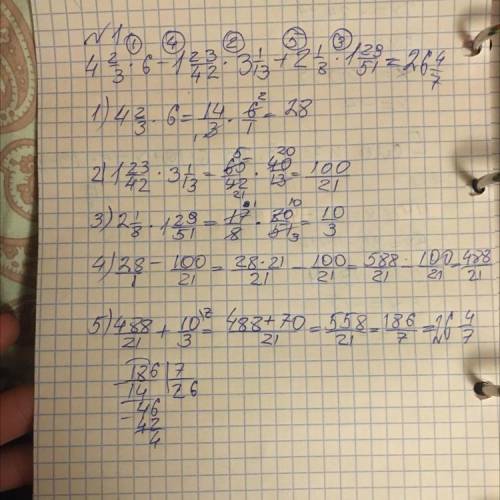 №1. ① ④ ② ⑤ ③
4 2/3 · 6 - 1 23/42 · 3 1/13 + 2 1/8 · 1 29/51 = 26 4/7
1) 4 2/3 · 6 = 14/3 · 6/1 = 28
2) 1 23/42 · 3 1/13 = 65/42 · 40/13 = 100/21
3) 2 1/8 · 1 29/51 = 17/8 · 80/51 = 10/3
4) 28/1 - 100/21 = 28·21/21 - 100/21 = 588/21 - 100/21 = 488/21
5) 488/21 + 10/3 = 488+70/21 = 558/21 = 186/7 = 26 4/7
186 | 7
14 | 26
46
42
4